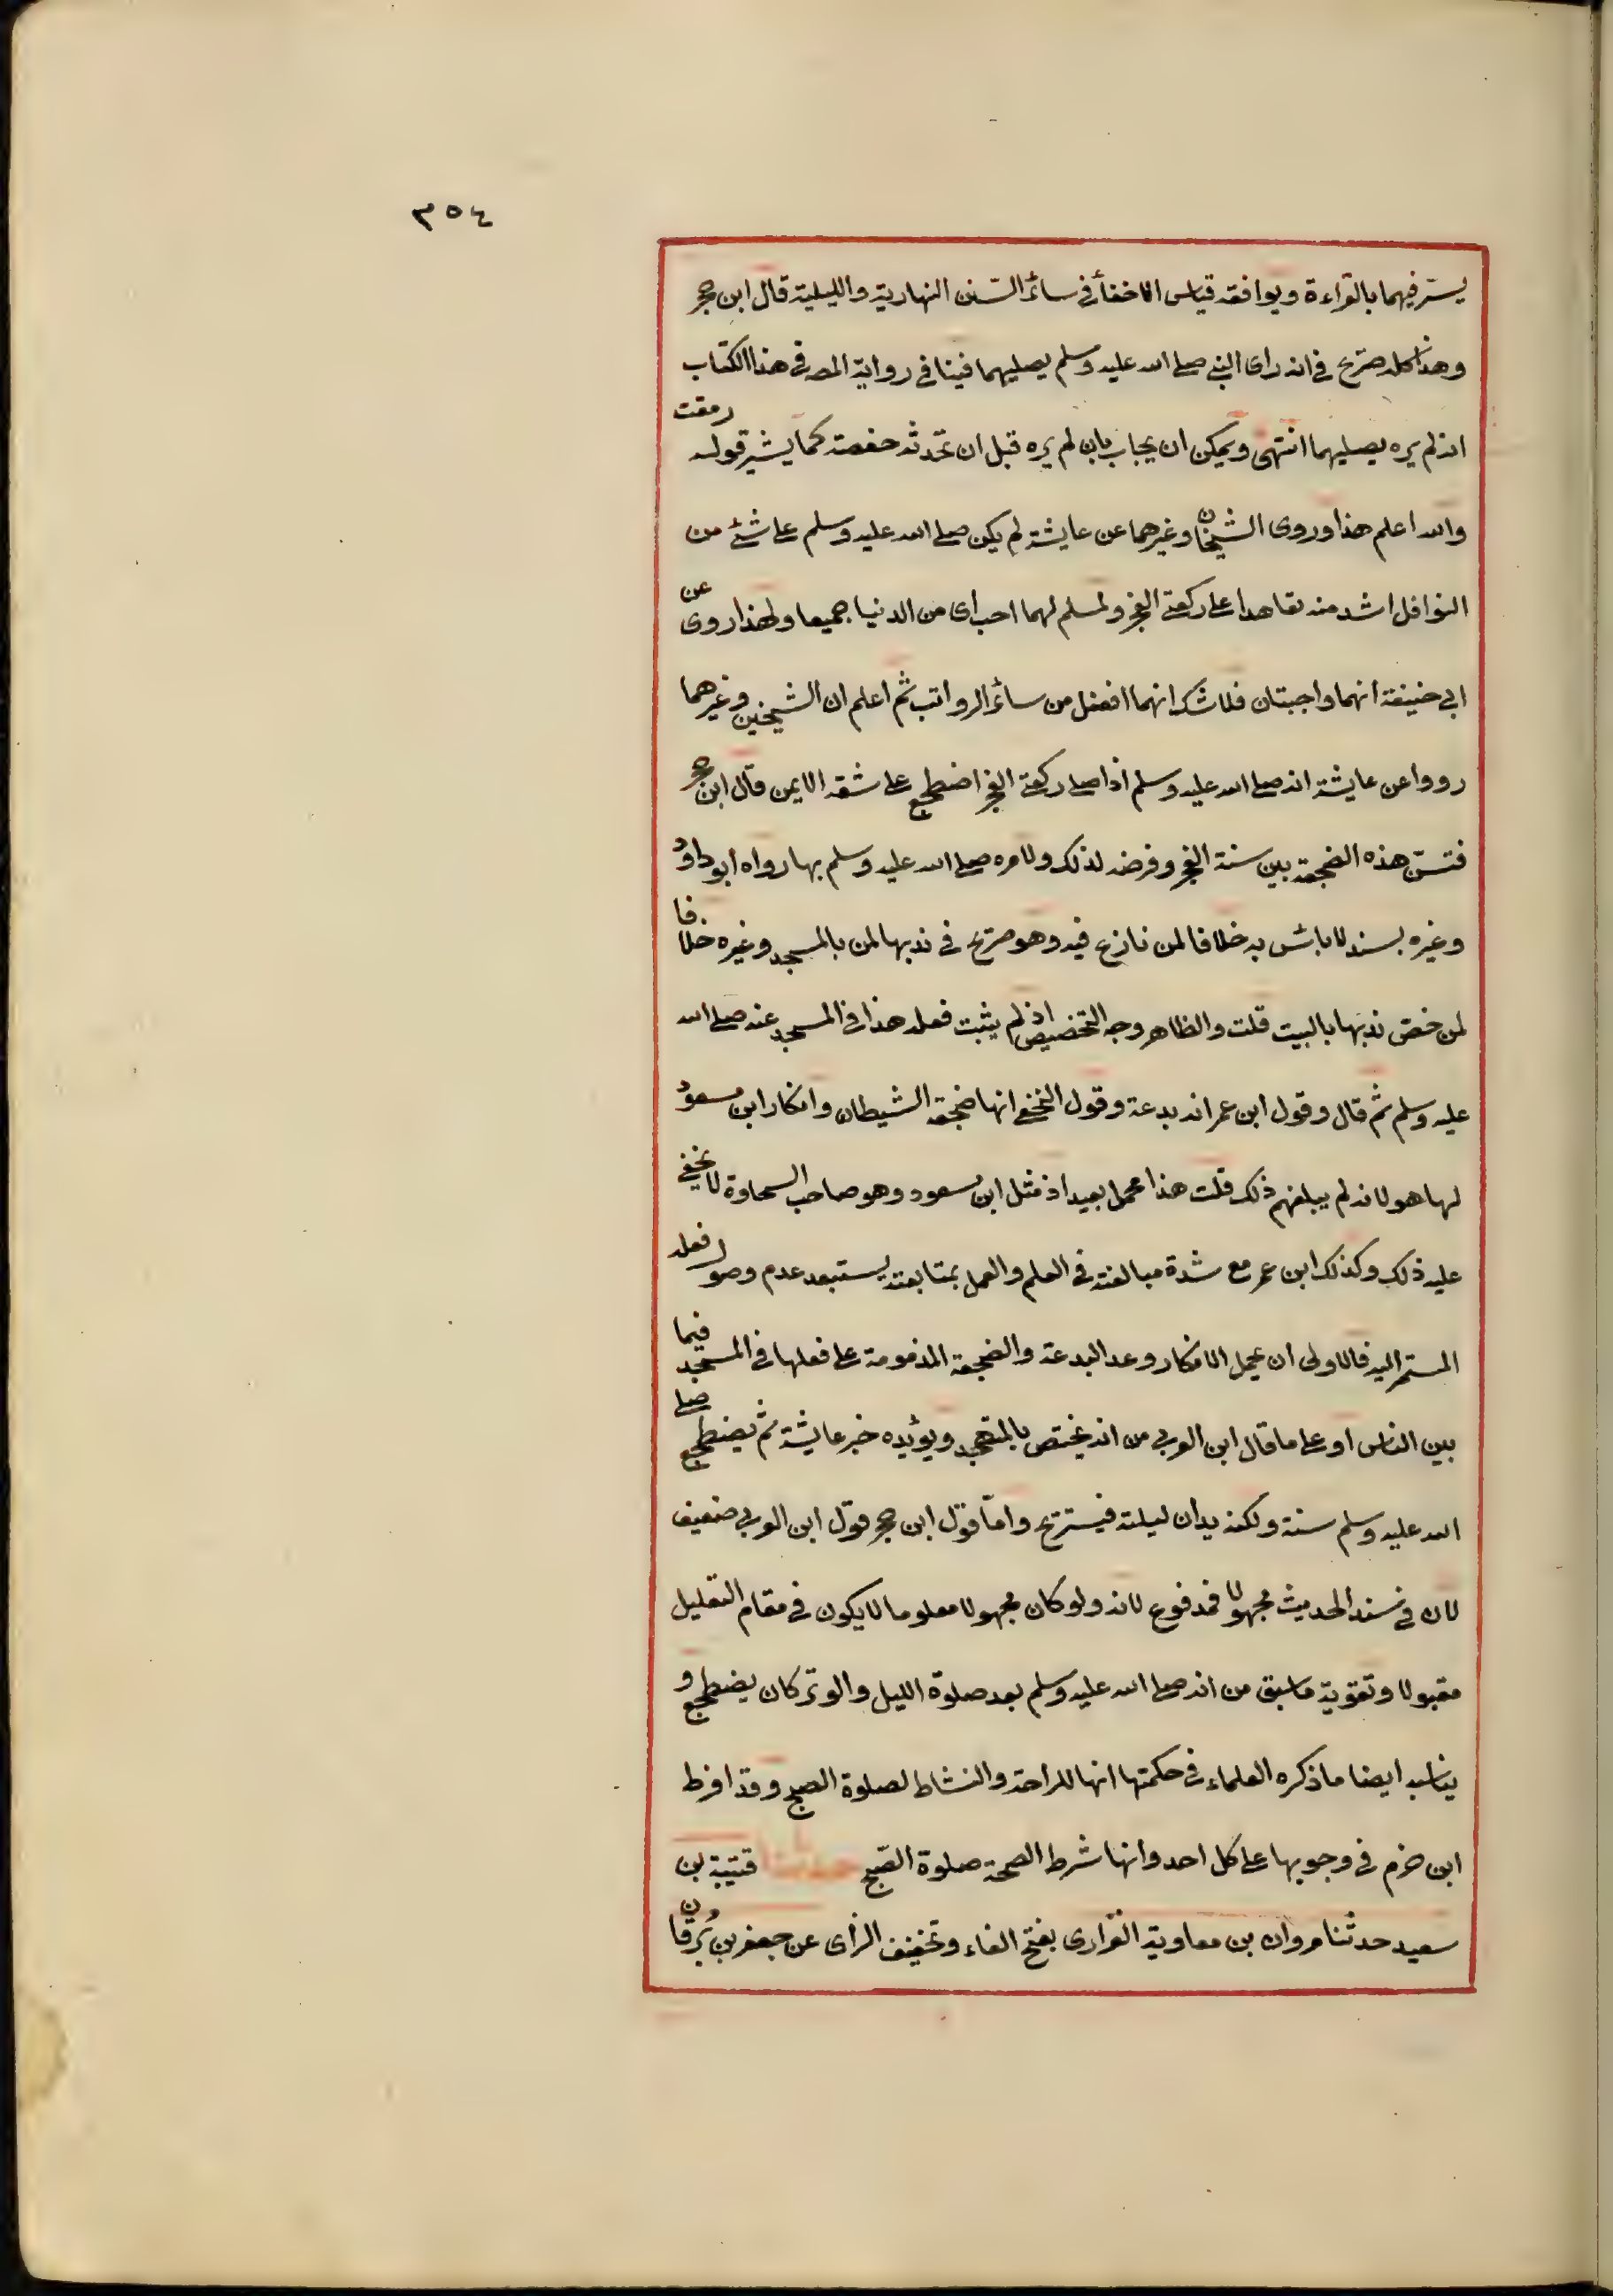 ٣٥٤
يسرّ فيهما بالقراءة ويوافقه قياس الاخفأ في سائر السّنن النهارية والليلية قال ابن حجر
وهذا كله صريح في انه راى النبي صلى الله عليه وسلم يصليهما فينافي رواية المصـ في هذا الكتاب
انه لم يره يصليهما انتهى ويمكن ان يجاب بان لم يره قبل ان تحدثه حفصة كما يشير قوله رمقت
والله اعلم هذا وروى الشيخان وغيرهما عن عايشة لم يكن صلى الله عليه وسلم على شئ من
النوافل اشد منه تعاهدا على ركعتي الفجر ولمسلم لهما احب اى من الدنيا جميعا ولهذا روى عن
ابي حنيفة انهما واجبتان فلا شك انهما افضل من سائر الرواتب ثم اعلم ان الشيخين وغيرهما
رووا عن عايشة انه صلى الله عليه وسلم اذا صلى ركعتي الفجر اضطجع على شقه الايمن قال ابن حجر
فتسنّ هذه الضجعة بين سنة الفجر وفرضه لذلك ولامره صلى الله عليه وسلم بها رواه ابو داود
وغيره بسند لا باس به خلافا لمن نازع فيه وهو صريح في ندبها لمن بالمسجد وغيره خلافا
لمن خصّ ندبها بالبيت قلت والظاهر وجه التخصيص اذ لم يثبت فعله هذا في المسجد عنه صلى الله
عليه وسلم ثم قال وقول ابن عمر انه بدعة وقول النخعي انها ضجعة الشيطان وانكار ابن مسعود
لها هو لانه لم يبلغهم ذلك قلت هذا محمل بعيد اذ مثل ابن مسعود وهو صاحب السحاوة لا يخفى
عليه ذلك وكذلك ابن عمر مع شدة مبالغته في العلم والعمل بمتابعته يستبعد عدم وصول فعله
المستمر اليه فالاولى ان يحمل الانكار وعد البدعة والضجعة المذمومة على فعلها في المسجد فيما
بين الناس او على ما قال ابن العربي من انه يختص بالمتهجد ويؤيده خبر عايشة ثم يضطجع صلى
الله عليه وسلم سنة ولكنه يدان ليلته فيستريح وامّا قول ابن حجر قول ابن العربي ضعيف
لان في سند الحديث مجهولا فمدفوع لانه ولو كان مجهولا معلوما لا يكون في مقام التعليل
مقبولا وتقوية ما سبق من انه صلى الله عليه وسلم بعد صلوة الليل والوتر كان يضطجع و
يناسبه ايضا ما ذكره العلماء في حكمتها انها للراحة والنشاط لصلوة الصبح وقد افرط
ابن حزم في وجوبها على كل احد وانها شرط الصحة صلوة الصّبح حدثنا قتيبة بن
سعيد حدثنا مروان بن معاوية الفزارى بفتح الفاء وتخفيف الزأى عن جعفر بن بُرقان